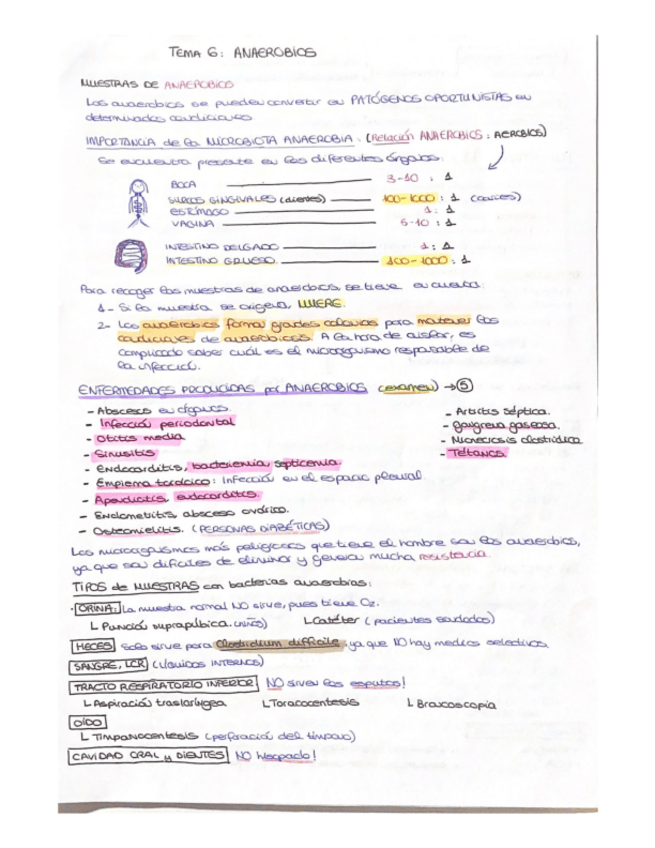 TEMA 6: ANAEROBIOS
MUESTRAS DE ANAEROBIOS
Los anaerobios se pueden convertir en PATÓGENOS OPORTUNISTAS en
determinadas condiciones
IMPORTANCIA de la MICROBIOTA ANAEROBIA. (Relación ANAEROBIOS : AEROBIOS)
Se encuentra presente en los diferentes órganos.
BOCA 3-10 : 1
SURCOS GINGIVALES (dientes) 100-1000 : 1 (caries)
ESTÓMAGO 1 : 1
VAGINA 5-10 : 1
INTESTINO DELGADO 1 : 1
INTESTINO GRUESO. 100-1000 : 1
Para recoger las muestras de anaerobios se tiene en cuenta:
1- Si la muestra se oxigena, MUERE.
2- Los anaerobios forman grandes colonias para mantener las
condiciones de anaerobiosis. A la hora de aislar, es
complicado saber cuál es el microorganismo responsable de
la infección.
ENFERMEDADES PRODUCIDAS por ANAEROBIOS (examen) → 5
- Abscesos en órganos. - Artritis séptica.
- Infección periodontal - Gangrena gaseosa.
- Otitis media - Mionecrosis clostridica
- Sinusitis - Tétanos.
- Endocarditis, bacteriemia, septicemia
- Empiema torácico: Infección en el espacio pleural
- Apendicitis, endocarditis.
- Endometritis absceso ovárico.
- Osteomielitis. (PERSONAS DIABÉTICAS)
Los microorganismos más peligrosos que tiene el hombre son los anaerobios,
ya que son difíciles de eliminar y generan mucha resistencia
TIPOS de MUESTRAS con bacterias anaerobias:
· ORINA: La muestra normal NO sirve, pues tiene O2.
L Punción suprapúbica. (niños) L Catéter (pacientes sondados)
HECES Solo sirve para Clostridium difficile, ya que NO hay medios selectivos
SANGRE, LCR (líquidos INTERNOS)
TRACTO RESPIRATORIO INFERIOR NO sirven los esputos!
L Aspiración traslaríngea L Toracocentesis L Broncoscopia
OÍDO
L Timpanocentesis (perforación del tímpano)
CAVIDAD ORAL y DIENTES NO hisopado!